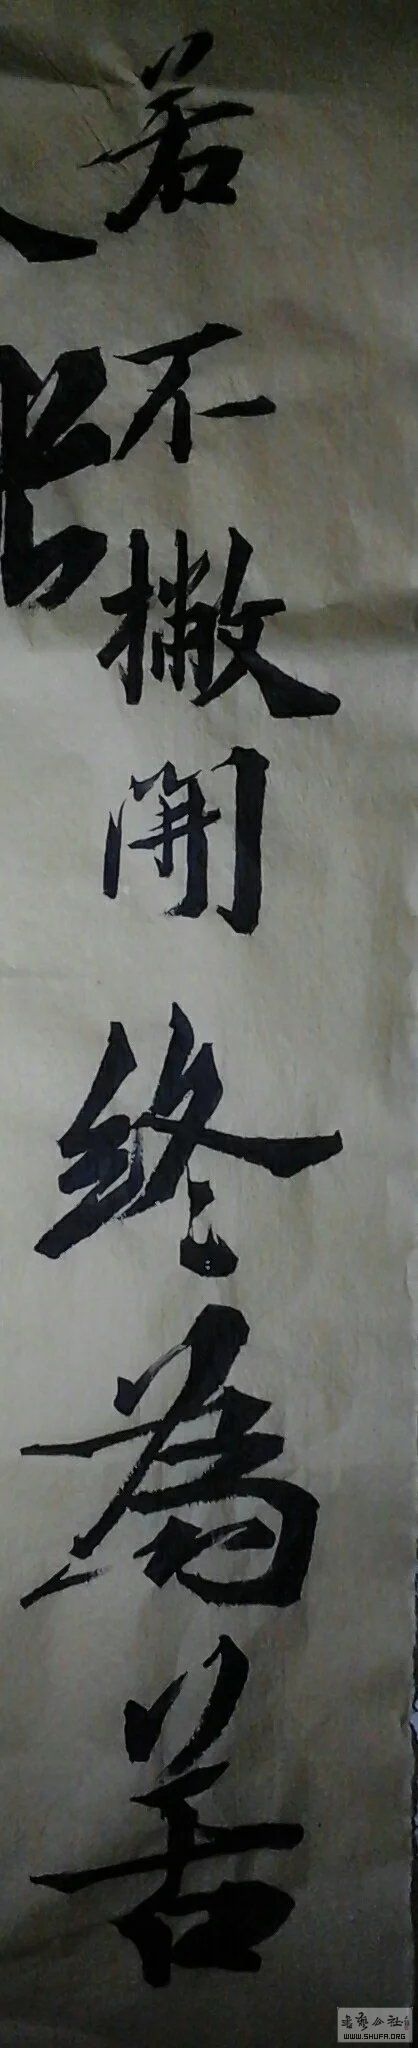 若不撇開終為苦
書藝公社
WWW.SHUFA.ORG